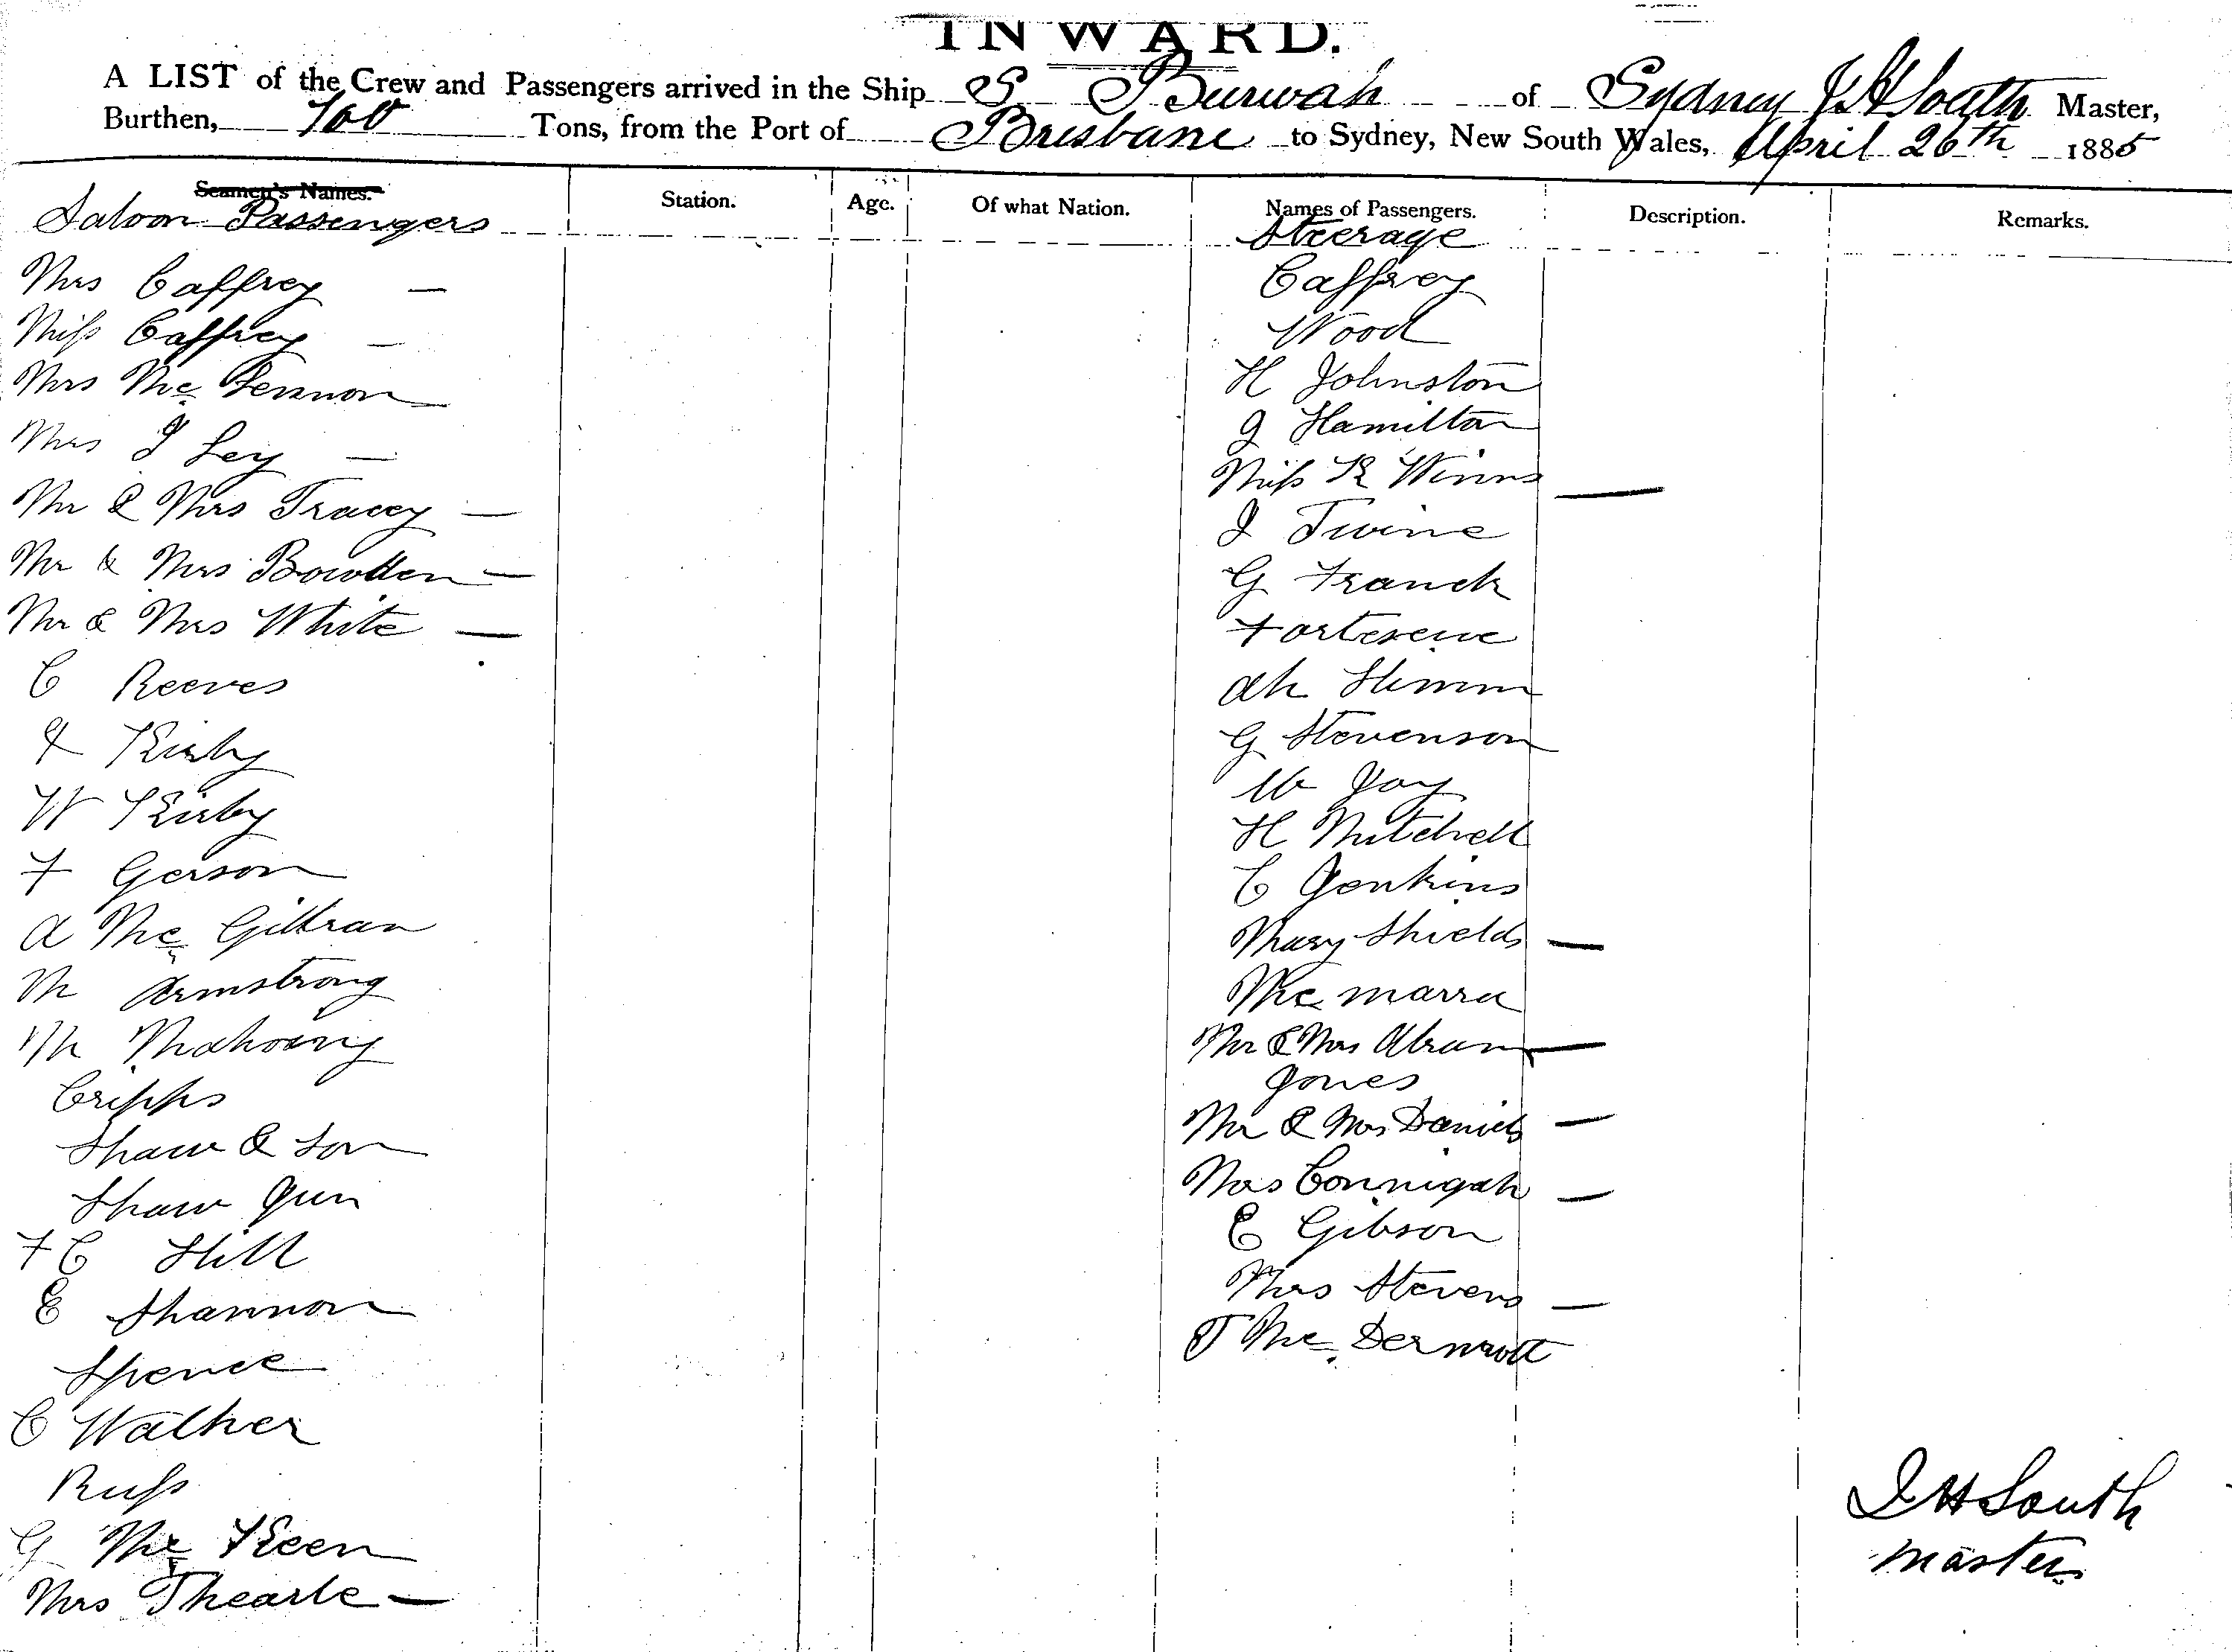 INWARD.
A LIST of the Crew and Passengers arrived in the Ship S Burwah of Sydney J H South Master,
Burthen, 700 Tons, from the Port of Brisbane to Sydney, New South Wales, April 26th 1885
Seamen's Names. Station. Age. Of what Nation. Names of Passengers. Description. Remarks.
Saloon Passengers
Mrs Caffrey —
Miss Caffrey —
Mrs Mc Lennon
Mrs J Ley —
Mr & Mrs Tracey —
Mr & Mrs Bowden —
Mr & Mrs White —
C Reeves
Kirby
W Kirby
F Gerson
A Mc
M Armstrong
M Mahoney
Cripps
Shaw & Son
Shaw Jun
F C Hill
E Shannon
Spence
C Walker
Russ
G Mc Keen
Mrs Thearle —
Steerage
Caffrey
Wood
H Johnston
J Hamilton
Miss K Winns —
J Twine
G Franck
Fortescue
Ah Himm
G Stevenson
W Joy
H Mitchell
C Jenkins
Mary Shields —
Mc marra
Mr & Mrs Abram —
Jones
Mr & Mrs Daniels —
Mrs Connigah —
E Gibson
Mrs Stevens —
T Mc Dermott
J H South
master